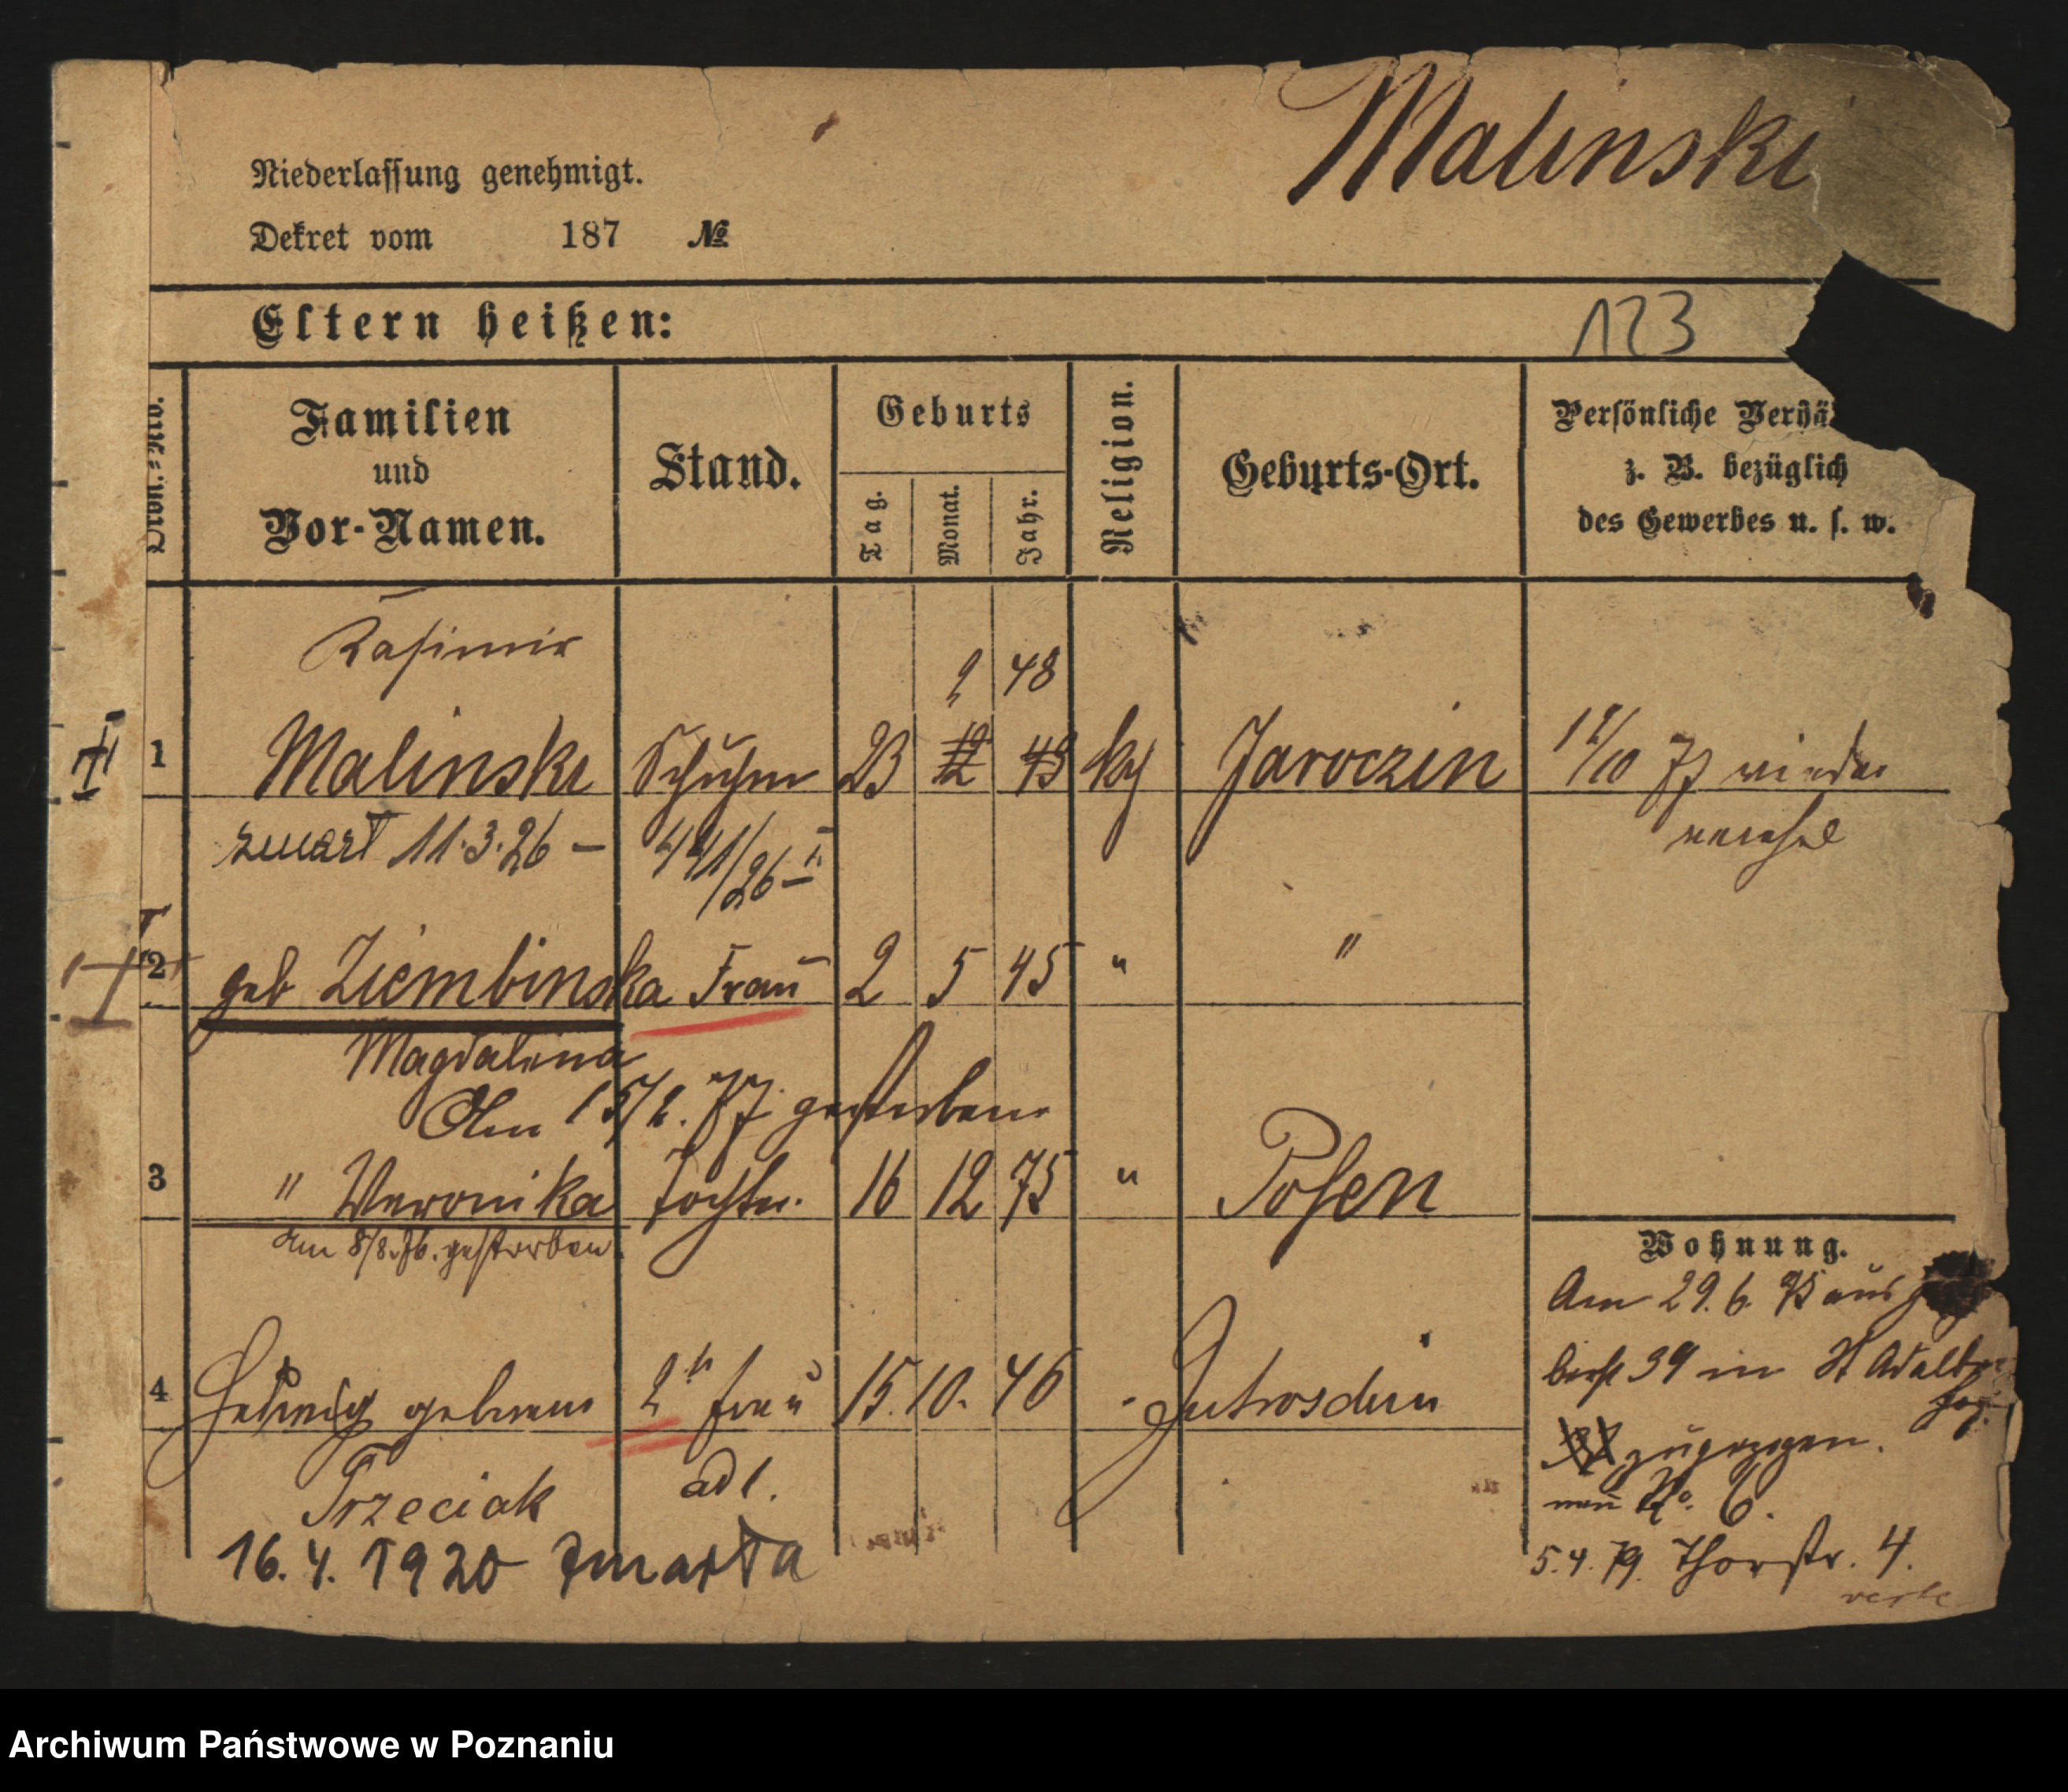 Malinski
Niederlassung genehmigt.
Dekret vom 187 №
Eltern heißen:
123
Ordn.-Nro.
Familien und Vor-Namen.
Stand.
Geburts
Tag. Monat. Jahr.
Religion.
Geburts-Ort.
Persönliche Verhä
z. B. bezüglich
des Gewerbes u. s. w.
Kasimir
2 48
1 Malinski Schuhm 23 12 43 kth Jaroczin 1/10 77 wieder
zmarł 11.3.26 – 441/26 II
2 geb Ziembinska Frau 2 5 45 " "
Magdalena
Am 15/2. 77 gestorben
3 " Weronika Tochter. 16 12 75 " Posen
am 8/8.76. gestorben.
Wohnung.
Am 29.6. aus
39 in St Adalb
4 Hedwig geborene 2te Frau 15. 10. 46 Jutroschin
zugezogen.
Trzeciak ad 1.
No. 6.
16.4.1920 zmarła
5.4.79. Thorstr. 4.